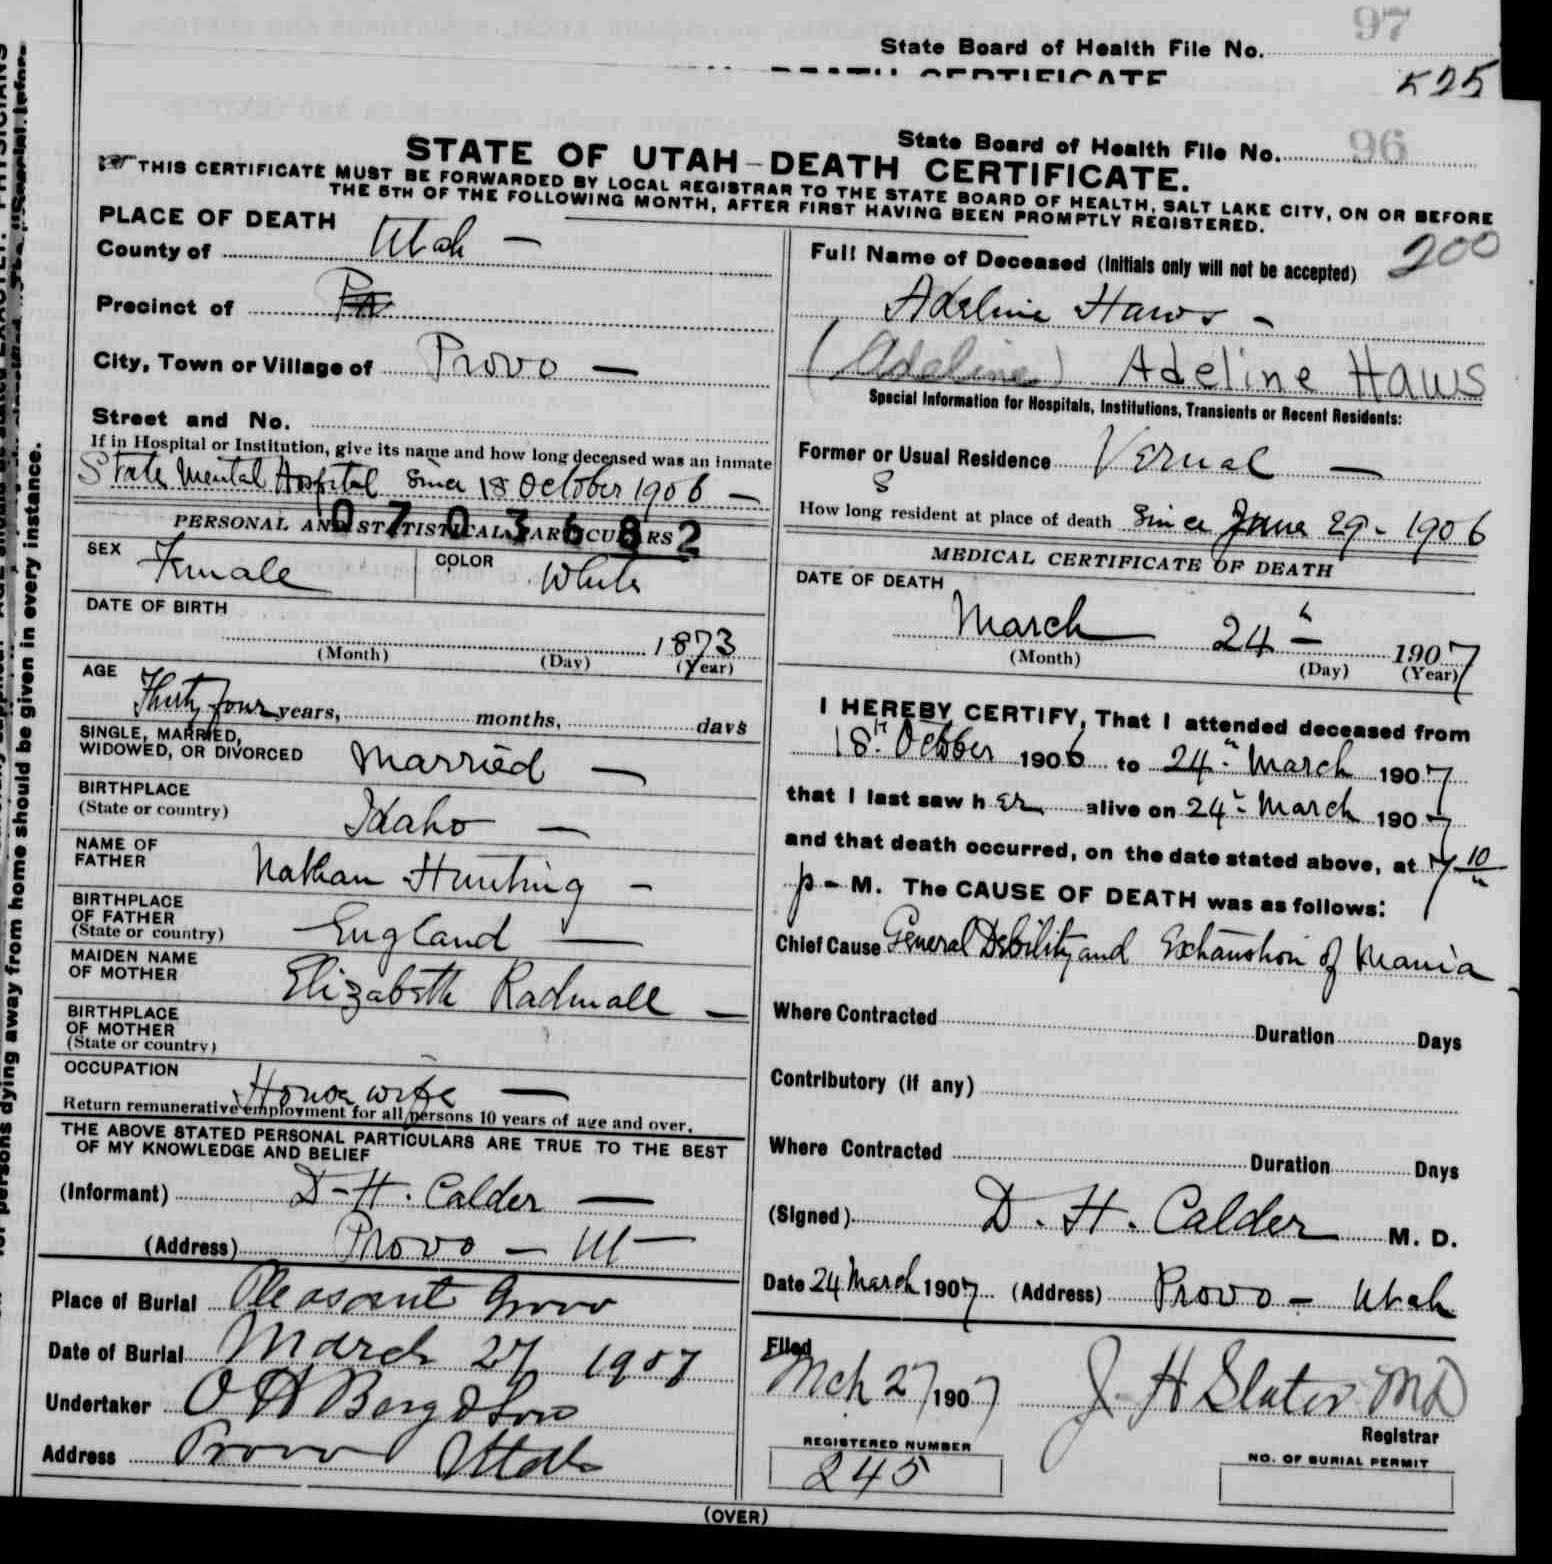 97
State Board of Health File No.
DEATH CERTIFICATE
525
State Board of Health File No. 96
STATE OF UTAH—DEATH CERTIFICATE.
THIS CERTIFICATE MUST BE FORWARDED BY LOCAL REGISTRAR TO THE STATE BOARD OF HEALTH, SALT LAKE CITY, ON OR BEFORE
THE 5TH OF THE FOLLOWING MONTH, AFTER FIRST HAVING BEEN PROMPTLY REGISTERED.
200
PLACE OF DEATH
County of Utah —
Precinct of
City, Town or Village of Provo —
Street and No.
If in Hospital or Institution, give its name and how long deceased was an inmate
State Mental Hospital since 18 October 1906 —
0703682
PERSONAL AND STATISTICAL PARTICULARS
SEX Female COLOR White
DATE OF BIRTH
1873
(Month) (Day) (Year)
AGE
Thirty four years, months, days
SINGLE, MARRIED,
WIDOWED, OR DIVORCED Married —
BIRTHPLACE
(State or country) Idaho —
NAME OF
FATHER Nathan Hunting —
BIRTHPLACE
OF FATHER
(State or country) England —
MAIDEN NAME
OF MOTHER Elizabeth Radmall —
BIRTHPLACE
OF MOTHER
(State or country)
OCCUPATION
House wife —
Return remunerative employment for all persons 10 years of age and over.
THE ABOVE STATED PERSONAL PARTICULARS ARE TRUE TO THE BEST
OF MY KNOWLEDGE AND BELIEF
(Informant) D-H. Calder —
(Address) Provo — Ut —
Place of Burial Pleasant Grove
Date of Burial March 27 1907
Undertaker O H Berg & Son
Address Provo Utah
Full Name of Deceased (Initials only will not be accepted)
Adeline Haws -
(Adeline) Adeline Haws
Special Information for Hospitals, Institutions, Transients or Recent Residents:
Former or Usual Residence Vernal —
How long resident at place of death since June 29 - 1906
MEDICAL CERTIFICATE OF DEATH
DATE OF DEATH
March 24 1907
(Month) (Day) (Year)
I HEREBY CERTIFY, That I attended deceased from
18th October 1906 to 24 March 1907
that I last saw her alive on 24 March 1907
and that death occurred, on the date stated above, at 7 10
p - M. The CAUSE OF DEATH was as follows:
Chief Cause General Debility and Exhaustion of Mania
Where Contracted Duration Days
Contributory (if any)
Where Contracted Duration Days
(Signed) D. H. Calder M. D.
Date 24 March 1907 (Address) Provo - Utah
Filed
Mch 27 1907 J H Slater MD
Registrar
REGISTERED NUMBER
245
NO. OF BURIAL PERMIT
(OVER)
for persons dying away from home should be given in every instance.